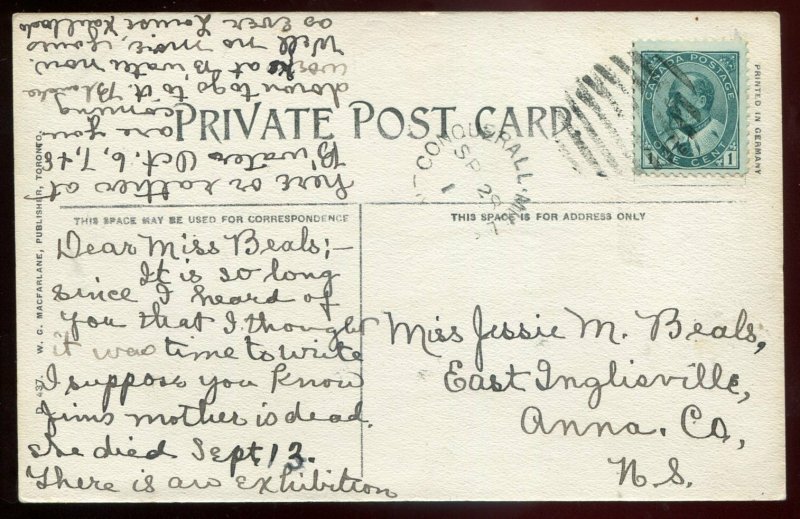 PRIVATE POST CARD
CANADA POSTAGE
1 ONE CENT 1
CONQUERALL
SP 28
PRINTED IN GERMANY
D. 437. W. G. MACFARLANE, PUBLISHER, TORONTO.
THIS SPACE MAY BE USED FOR CORRESPONDENCE
THIS SPACE IS FOR ADDRESS ONLY
Dear Miss Beals;-
It is so long
since I heard of
you that I thought
it was time to write
I suppose you know
Jims mother is dead.
she died Sept 13.
There is an exhibition
here or rather at
B'water Oct. 6, 7, & 8
are you
coming
down to go to it. Blanche
at B'water now.
Well no more, icons
as ever Louise
Miss Jessie M. Beals,
East Inglisville,
Anna. Co,
N.S.